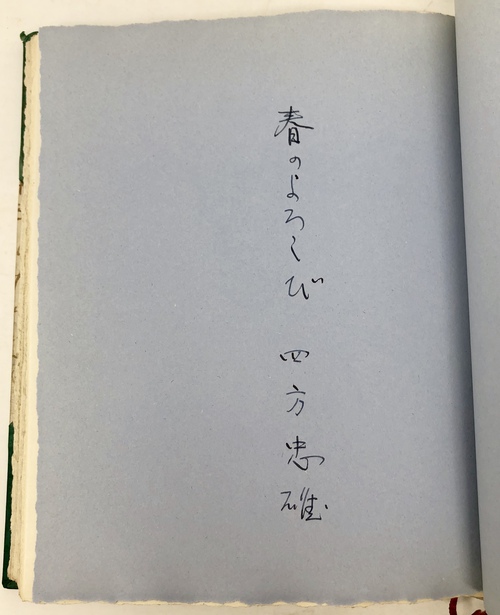 春のよろこび 四方忠雄